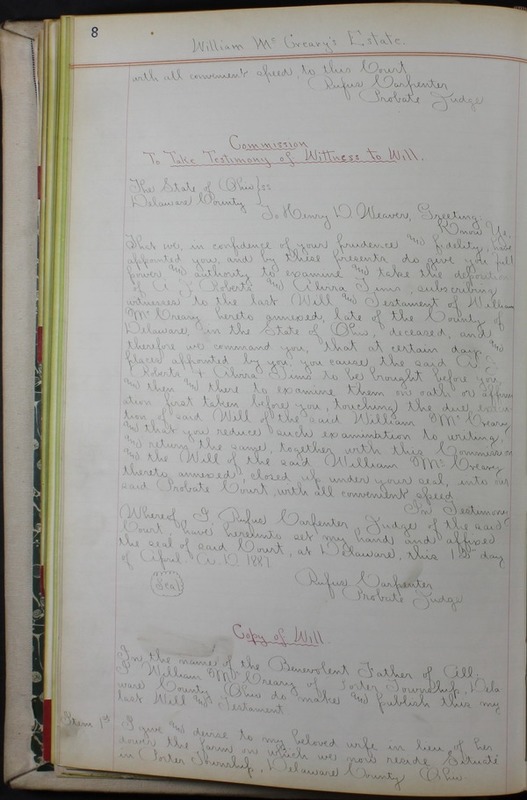 8
William Mc Creary's Estate.
with all convenient speed, to this Court
Rufus Carpenter
Probate Judge
Commission
To Take Testimony of Wittness to Will.
The State of Ohio } ss
Delaware County
To Henry D Weaver, Greeting:
Know Ye,
That we, in confidence of your prudence and fidelity, have
appointed you, and by these presents do give you full
power and authority to examine and take the deposition
of A J Roberts and Almra Sims, subscribing
witnesses to the last Will and Testament of William
Mc Creary hereto annexed, late of the County of
Delaware, in the State of Ohio, deceased, and
therefore we command you, that at certain day, and
places appointed by you, you cause the said A J
Roberts & Almra Sims to be brought before you,
and then and there to examine them on oath or affirm
ation first taken before you, touching the due execu
tion of said Will of the said William Mc Creary,
and that you reduce such examination to writing,
and return the same, together with this Commission
and the Will of the said William Mc Creary
thereto annexed, closed up under your seal, into our
said Probate Court, with all convenient speed
In Testimony
Whereof, I, Rufus Carpenter Judge of the said
Court, have hereunto set my hand and affixed
the seal of said Court, at Delaware, this 1st day
of April A.D. 1887
(Seal)
Rufus Carpenter
Probate Judge
Copy of Will.
In the name of the Benevolent Father of All,
I William Mc Creary of Porter Township, Dela
ware County Ohio do make and publish this my
last Will and Testament
Item 1st I give and devise to my beloved wife in lieu of her
dower the farm on which we now reside Situate
in Porter Township, Delaware County Ohio